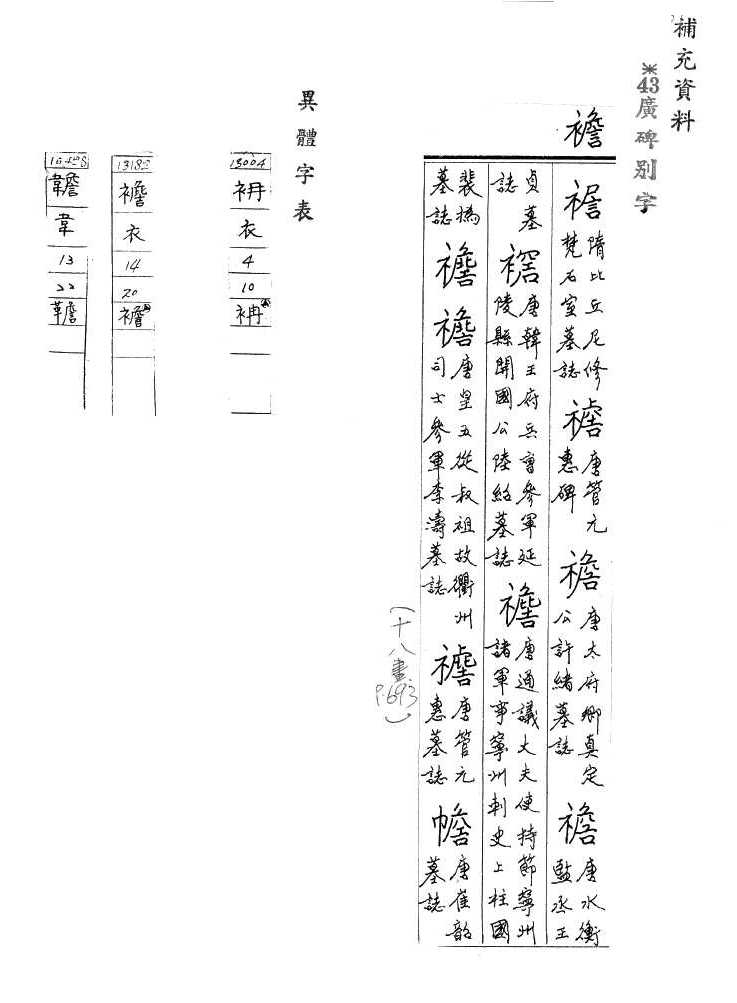 補充資料
※43廣碑別字
襜
隋比丘尼修
梵石室墓誌
唐管元
惠碑
唐太府卿真定
公許緒墓誌
唐水衡
監丞王
貞墓
誌
唐韓王府兵曹參軍延
陵縣開國公陸紹墓誌
襜
唐通議大夫使持節寧州
諸軍事寧州刺史上柱國
裴撝
墓誌
襜
襜
唐皇五從叔祖故衢州
司士參軍李濤墓誌
唐管元
惠墓誌
幨
唐崔韶
墓誌
(十八畫 P.693)
異體字表
13004
袡
衣
4
10
13182
襜
衣
14
20
韋
13
22